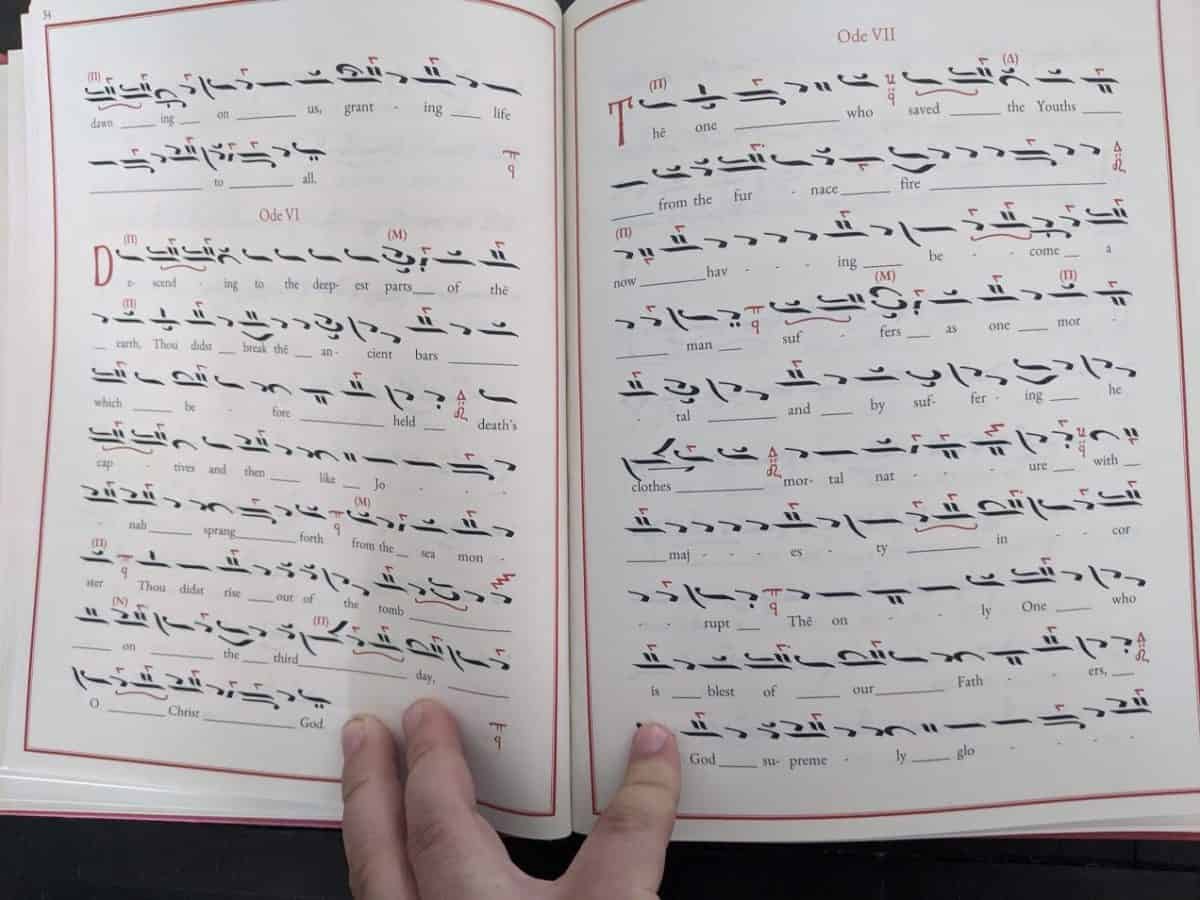 34
dawn ing on us, grant - ing life
to all.
Ode VI
De- scend - ing to the deep- est parts of thē
earth, Thou didst break thē an- cient bars
which be - fore held death's
cap - tives and then like Jo - - -
- nah sprang forth from the sea mon -
ster Thou didst rise out of the tomb
on the third day,
O Christ God.
Ode VII
Thē one who saved the Youths
from the fur - nace fire
now hav - - - ing be - - come a
man suf - fers as one mor -
- tal and by suf- fer - ing he
clothes mor- tal nat - - - ure with
maj - - - es - ty in - - cor
- - rupt Thē on - - ly One who
is blest of our Fath - - ers,
God su- preme - ly glo - - - -